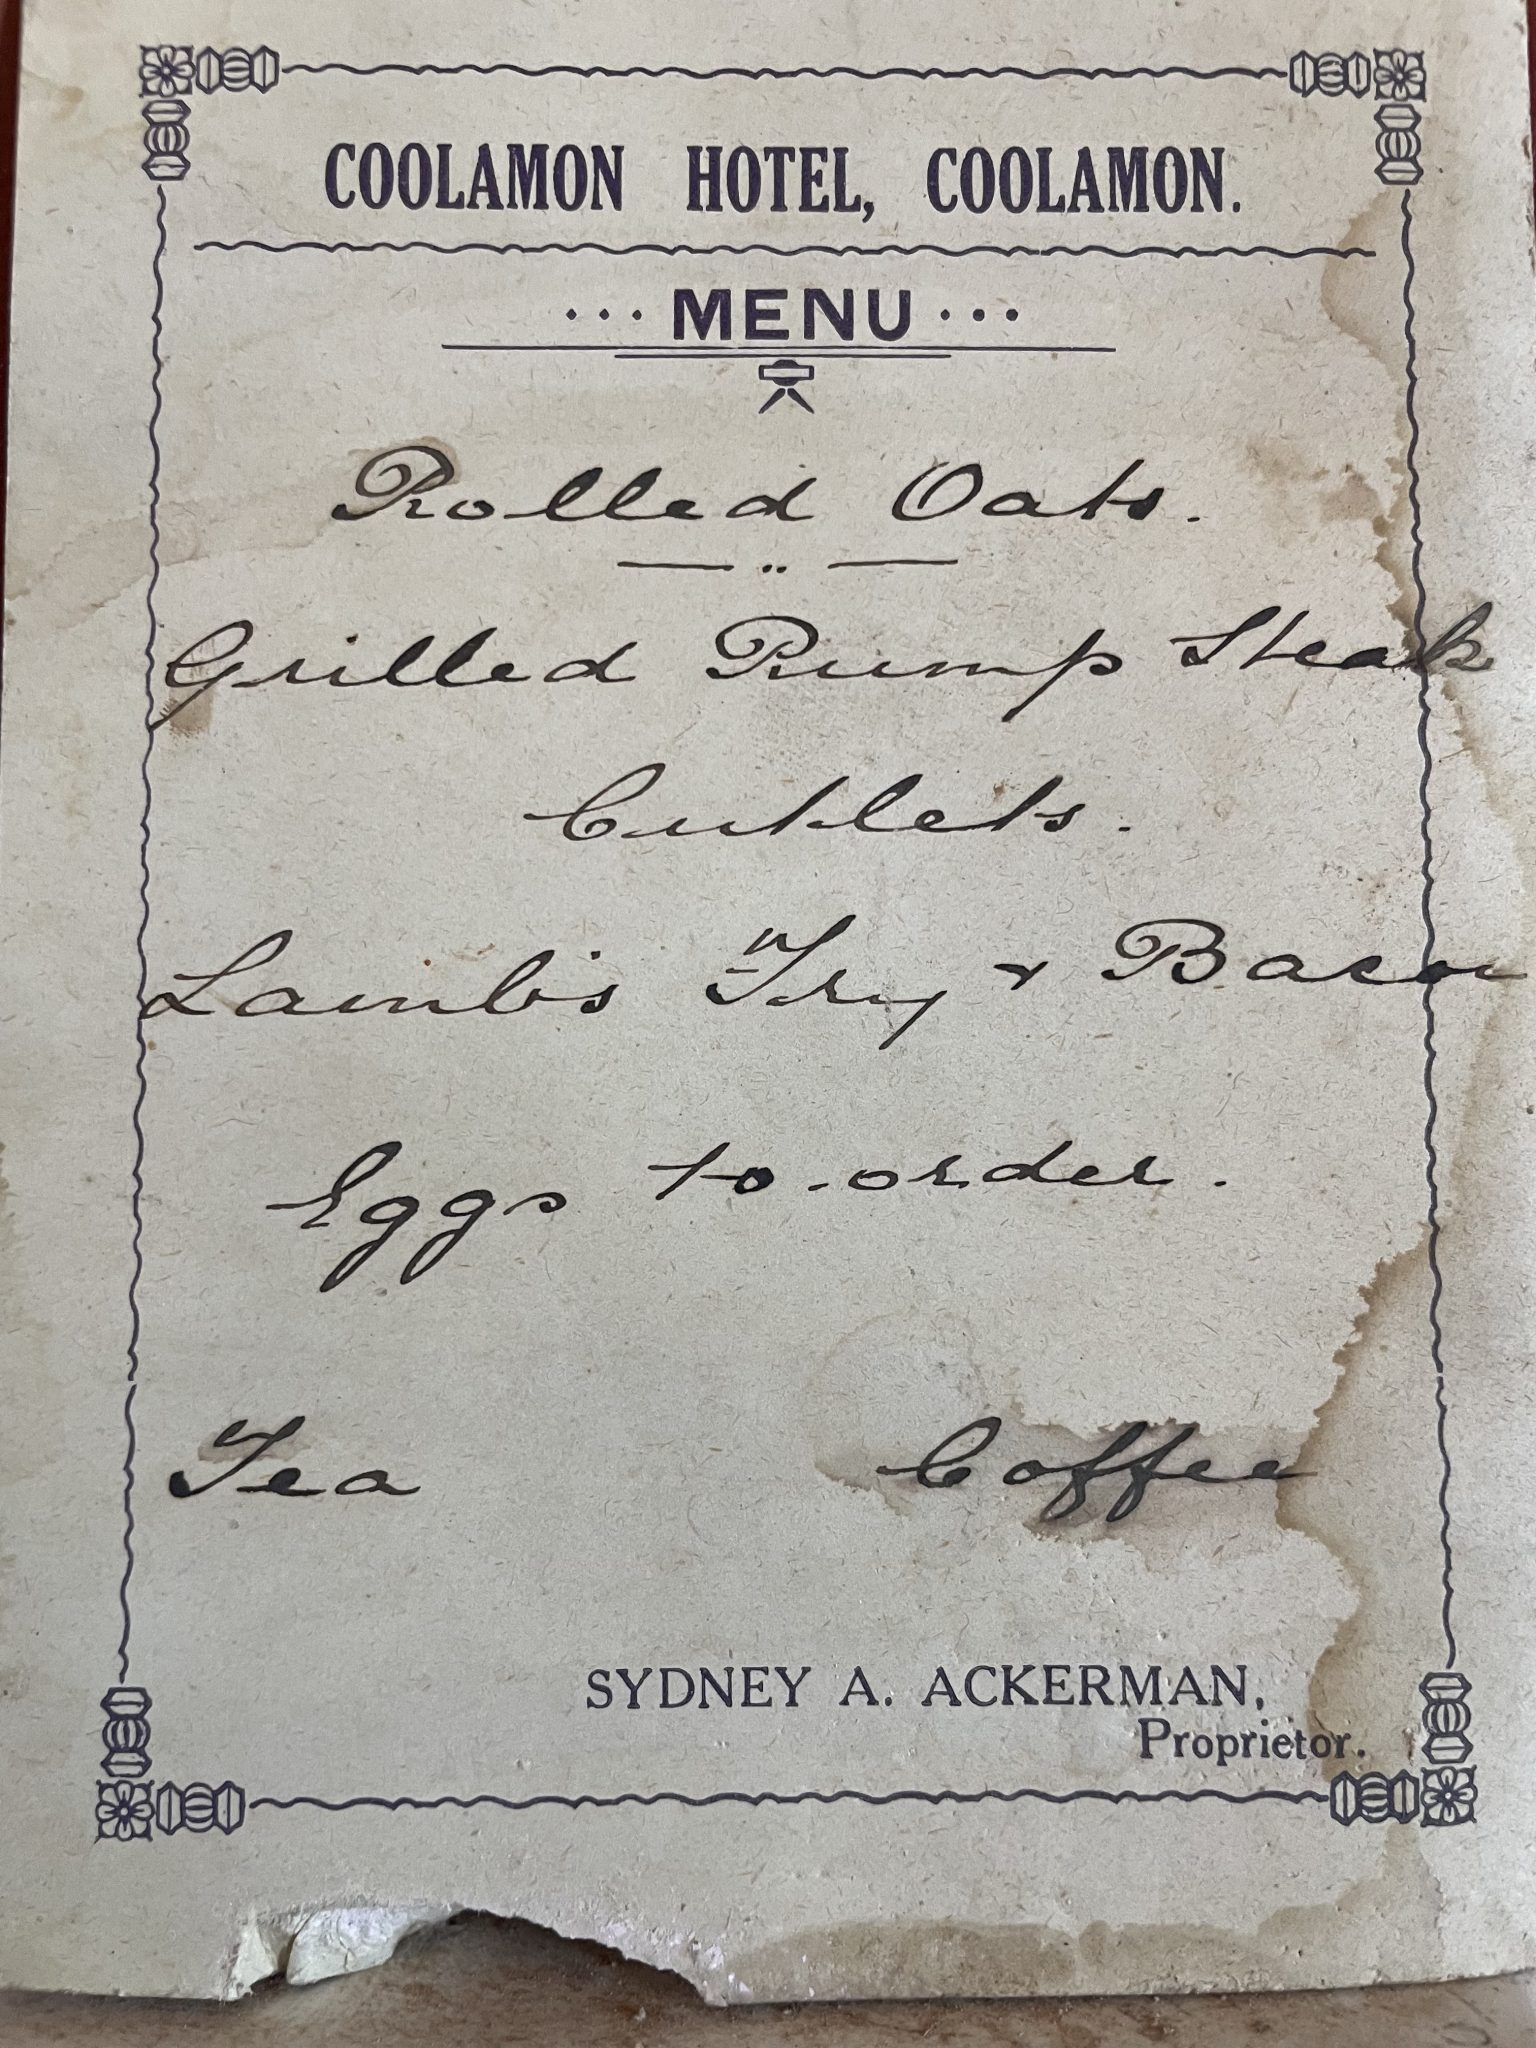 COOLAMON HOTEL, COOLAMON.
... MENU ...
Rolled Oats.
Grilled Rump Steak
Cutlets.
Lamb's Fry & Bacon
Eggs to order.
Tea Coffee
SYDNEY A. ACKERMAN,
Proprietor.